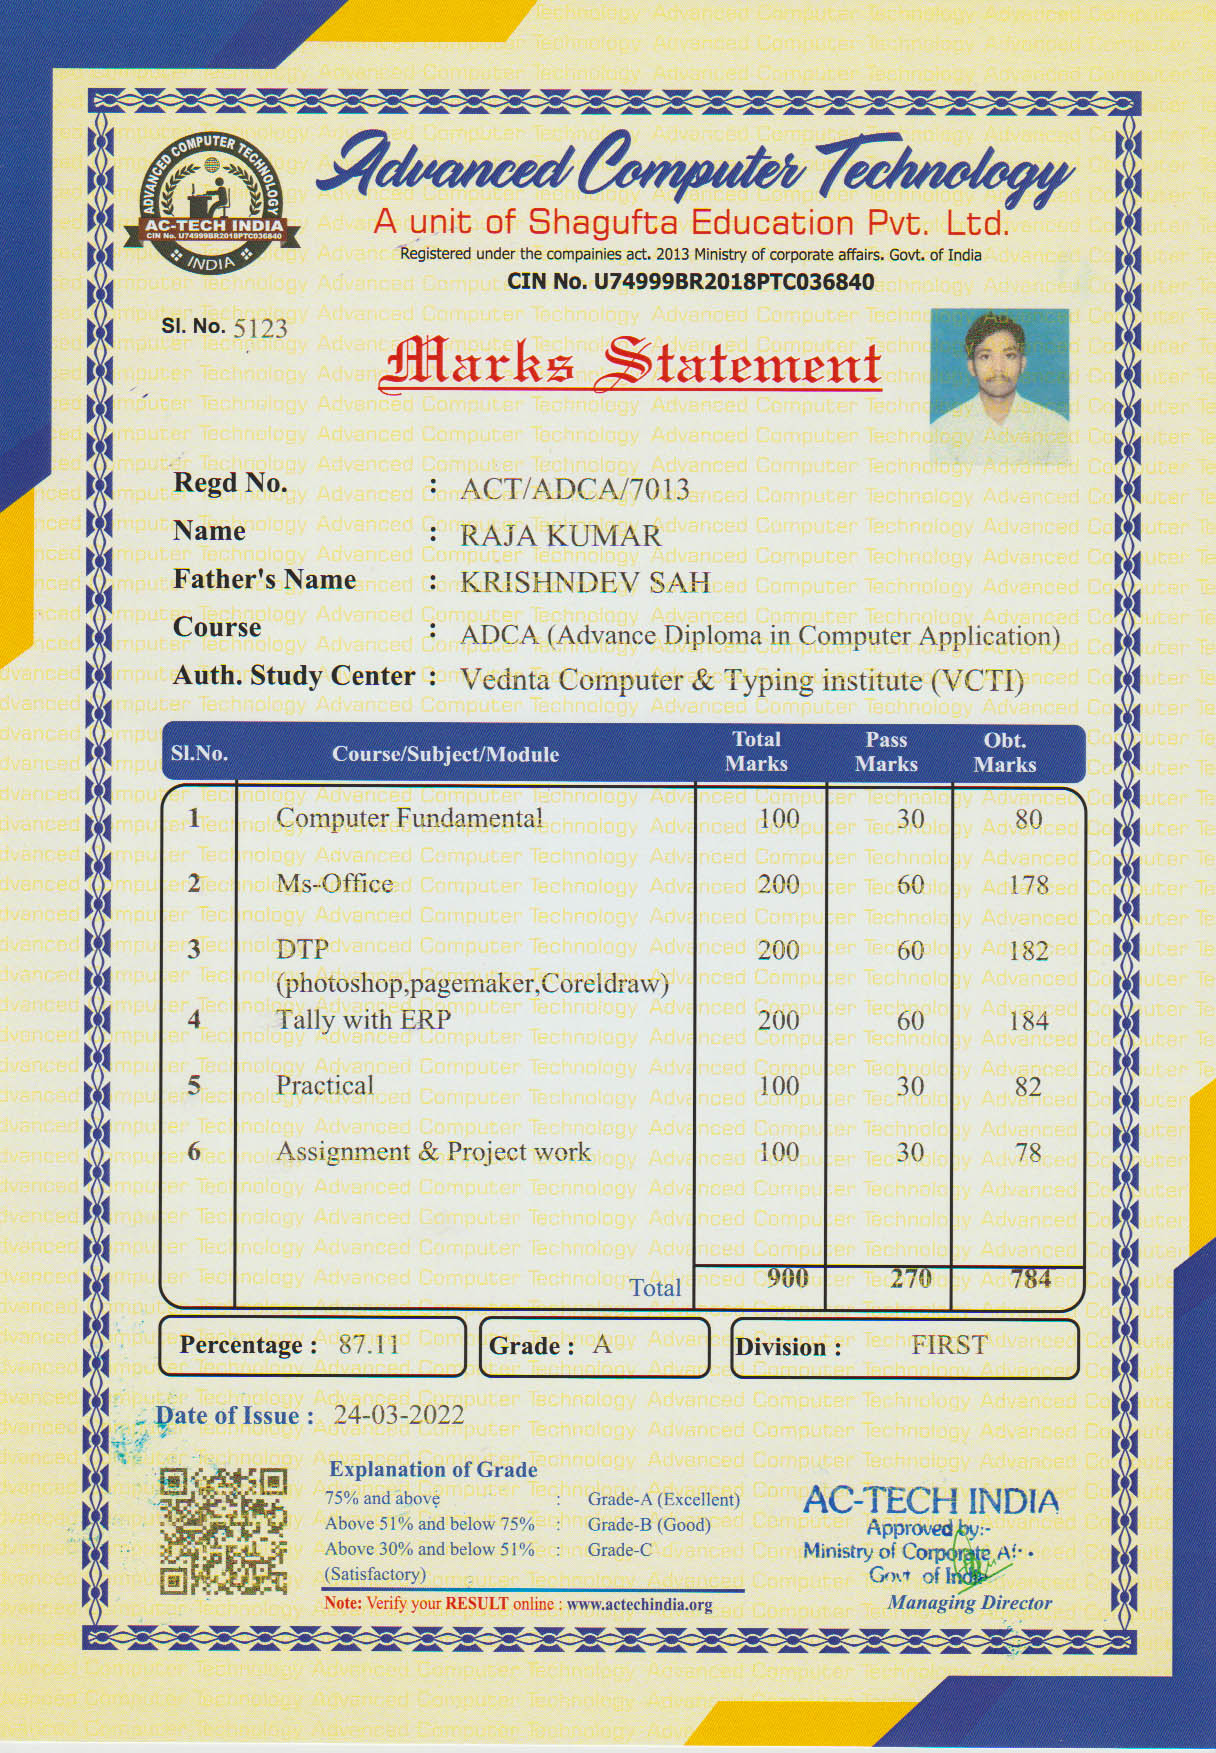 ADVANCED COMPUTER TECHNOLOGY
AC-TECH INDIA
CIN No. U74999BR2018PTC036840
INDIA
Advanced Computer Technology
A unit of Shagufta Education Pvt. Ltd.
Registered under the compainies act. 2013 Ministry of corporate affairs. Govt. of India
CIN No. U74999BR2018PTC036840
Sl. No. 5123
Marks Statement
Regd No. : ACT/ADCA/7013
Name : RAJA KUMAR
Father's Name : KRISHNDEV SAH
Course : ADCA (Advance Diploma in Computer Application)
Auth. Study Center : Vednta Computer & Typing institute (VCTI)
Sl.No. Course/Subject/Module Total Marks Pass Marks Obt. Marks
1 Computer Fundamental 100 30 80
2 Ms-Office 200 60 178
3 DTP 200 60 182
(photoshop,pagemaker,Coreldraw)
4 Tally with ERP 200 60 184
5 Practical 100 30 82
6 Assignment & Project work 100 30 78
Total 900 270 784
Percentage : 87.11 Grade : A Division : FIRST
Date of Issue : 24-03-2022
Explanation of Grade
75% and above : Grade-A (Excellent)
Above 51% and below 75% : Grade-B (Good)
Above 30% and below 51% : Grade-C
(Satisfactory)
Note: Verify your RESULT online : www.actechindia.org
AC-TECH INDIA
Approved by:-
Ministry of Corporate
Govt of India
Managing Director